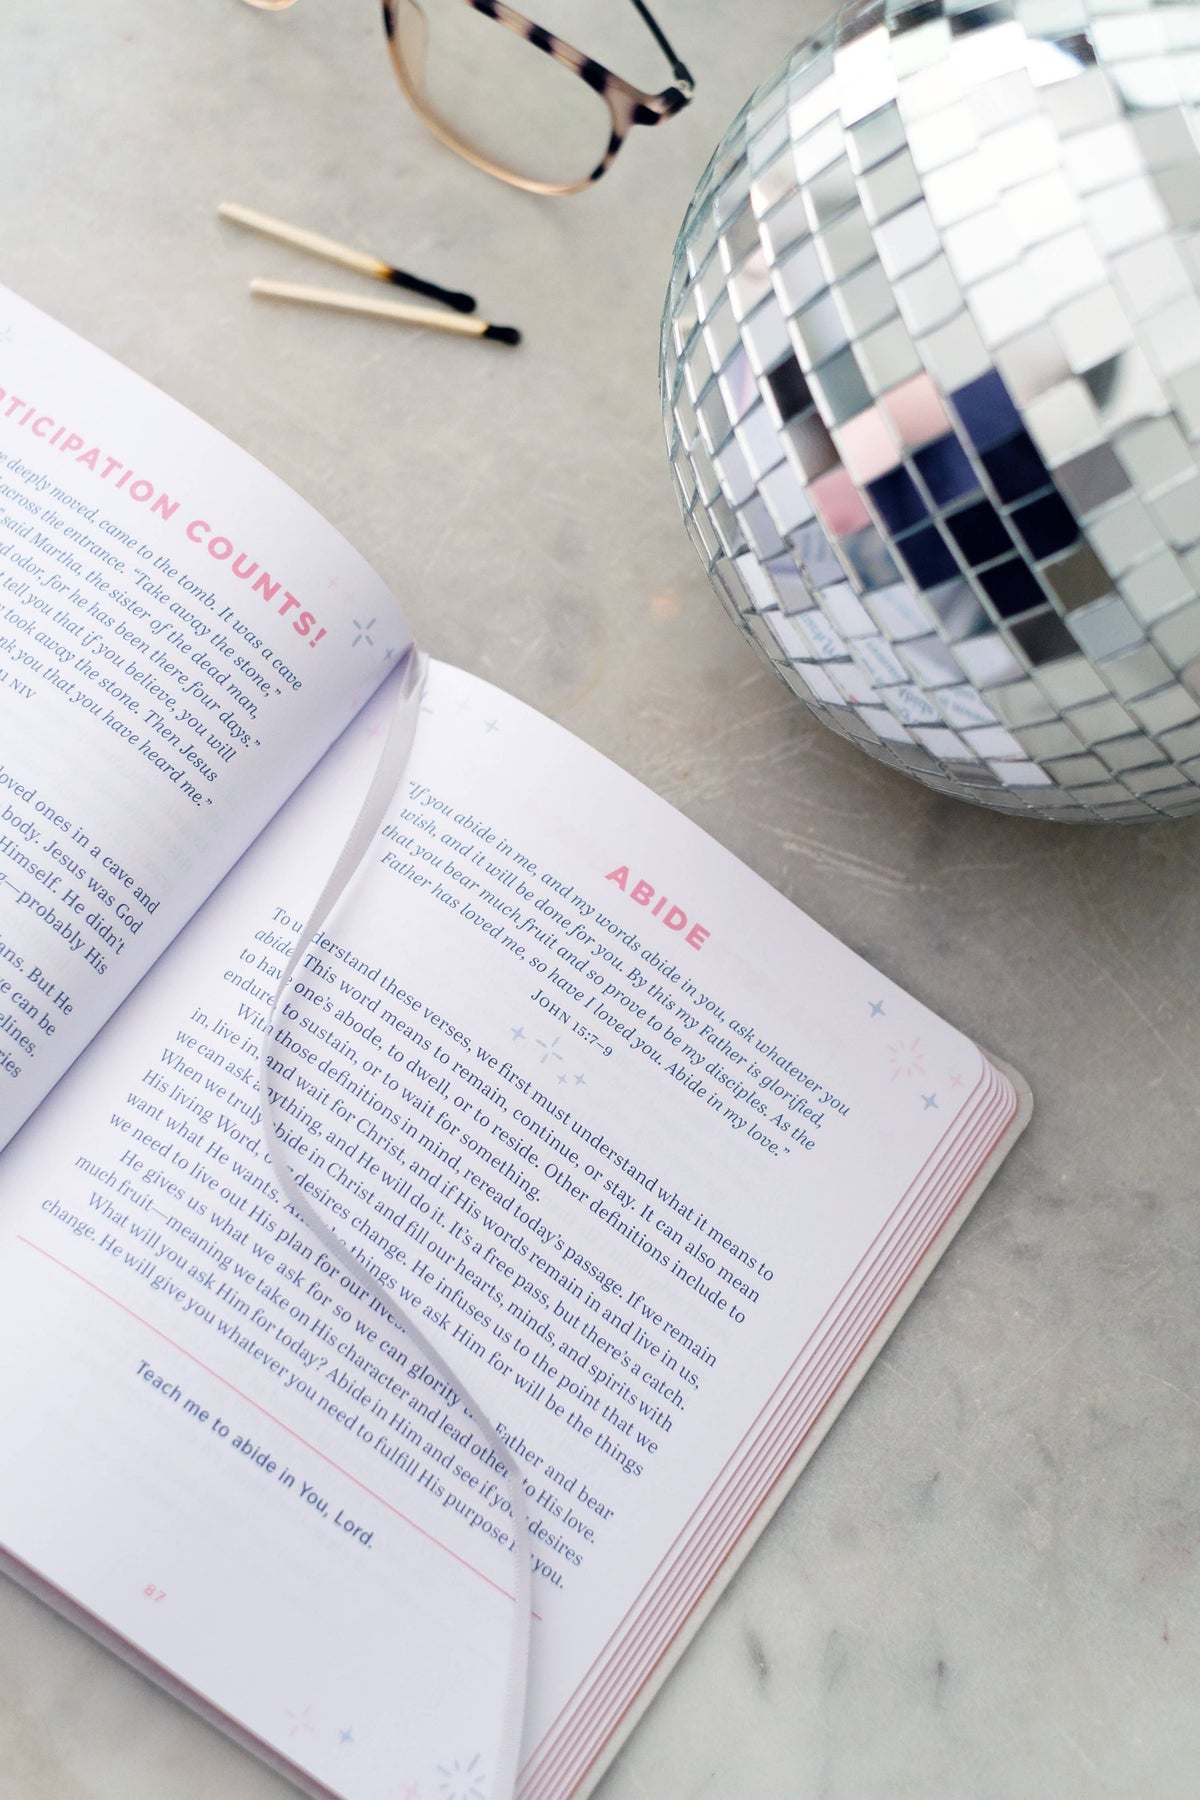 RTICIPATION COUNTS!
deeply moved, came to the tomb. It was a cave
across the entrance. “Take away the stone,”
said Martha, the sister of the dead man,
odor, for he has been there four days.”
tell you that if you believe, you will
took away the stone. Then Jesus
you that you have heard me.”
NIV
loved ones in a cave and
body. Jesus was God
Himself. He didn’t
probably His
But He
can be
ABIDE
“If you abide in me, and my words abide in you, ask whatever you
wish, and it will be done for you. By this my Father is glorified,
that you bear much fruit and so prove to be my disciples. As the
Father has loved me, so have I loved you. Abide in my love.”
JOHN 15:7–9
To understand these verses, we first must understand what it means to
abide. This word means to remain, continue, or stay. It can also mean
to have one’s abode, to dwell, or to reside. Other definitions include to
endure, to sustain, or to wait for something.
With those definitions in mind, reread today’s passage. If we remain
in, live in, and wait for Christ, and if His words remain in and live in us,
we can ask anything, and He will do it. It’s a free pass, but there’s a catch.
When we truly abide in Christ and fill our hearts, minds, and spirits with
His living Word, our desires change. He infuses us to the point that we
want what He wants. And the things we ask Him for will be the things
we need to live out His plan for our lives.
He gives us what we ask for so we can glorify the Father and bear
much fruit—meaning we take on His character and lead others to His love.
What will you ask Him for today? Abide in Him and see if your desires
change. He will give you whatever you need to fulfill His purpose for you.
Teach me to abide in You, Lord.
87